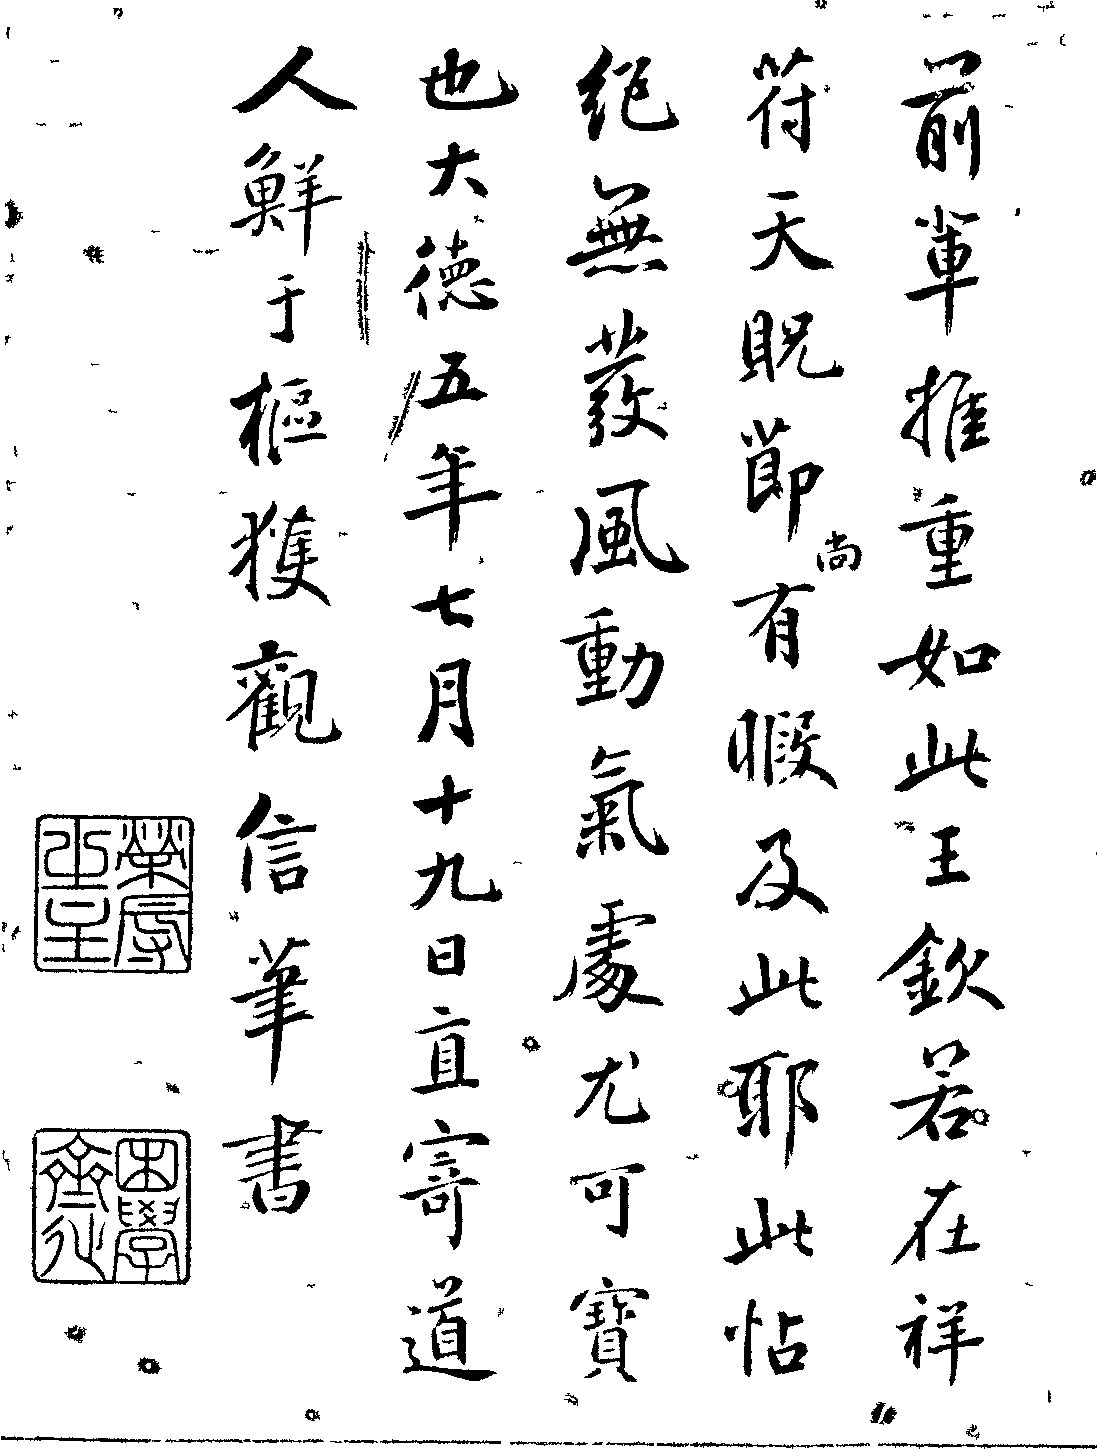 前輩推重如此王欽若在祥
符天貺節尚有暇及此耶此帖
絕無發風動氣處尤可寶
也大德五年七月十九日直寄道
人鮮于樞獲觀信筆書